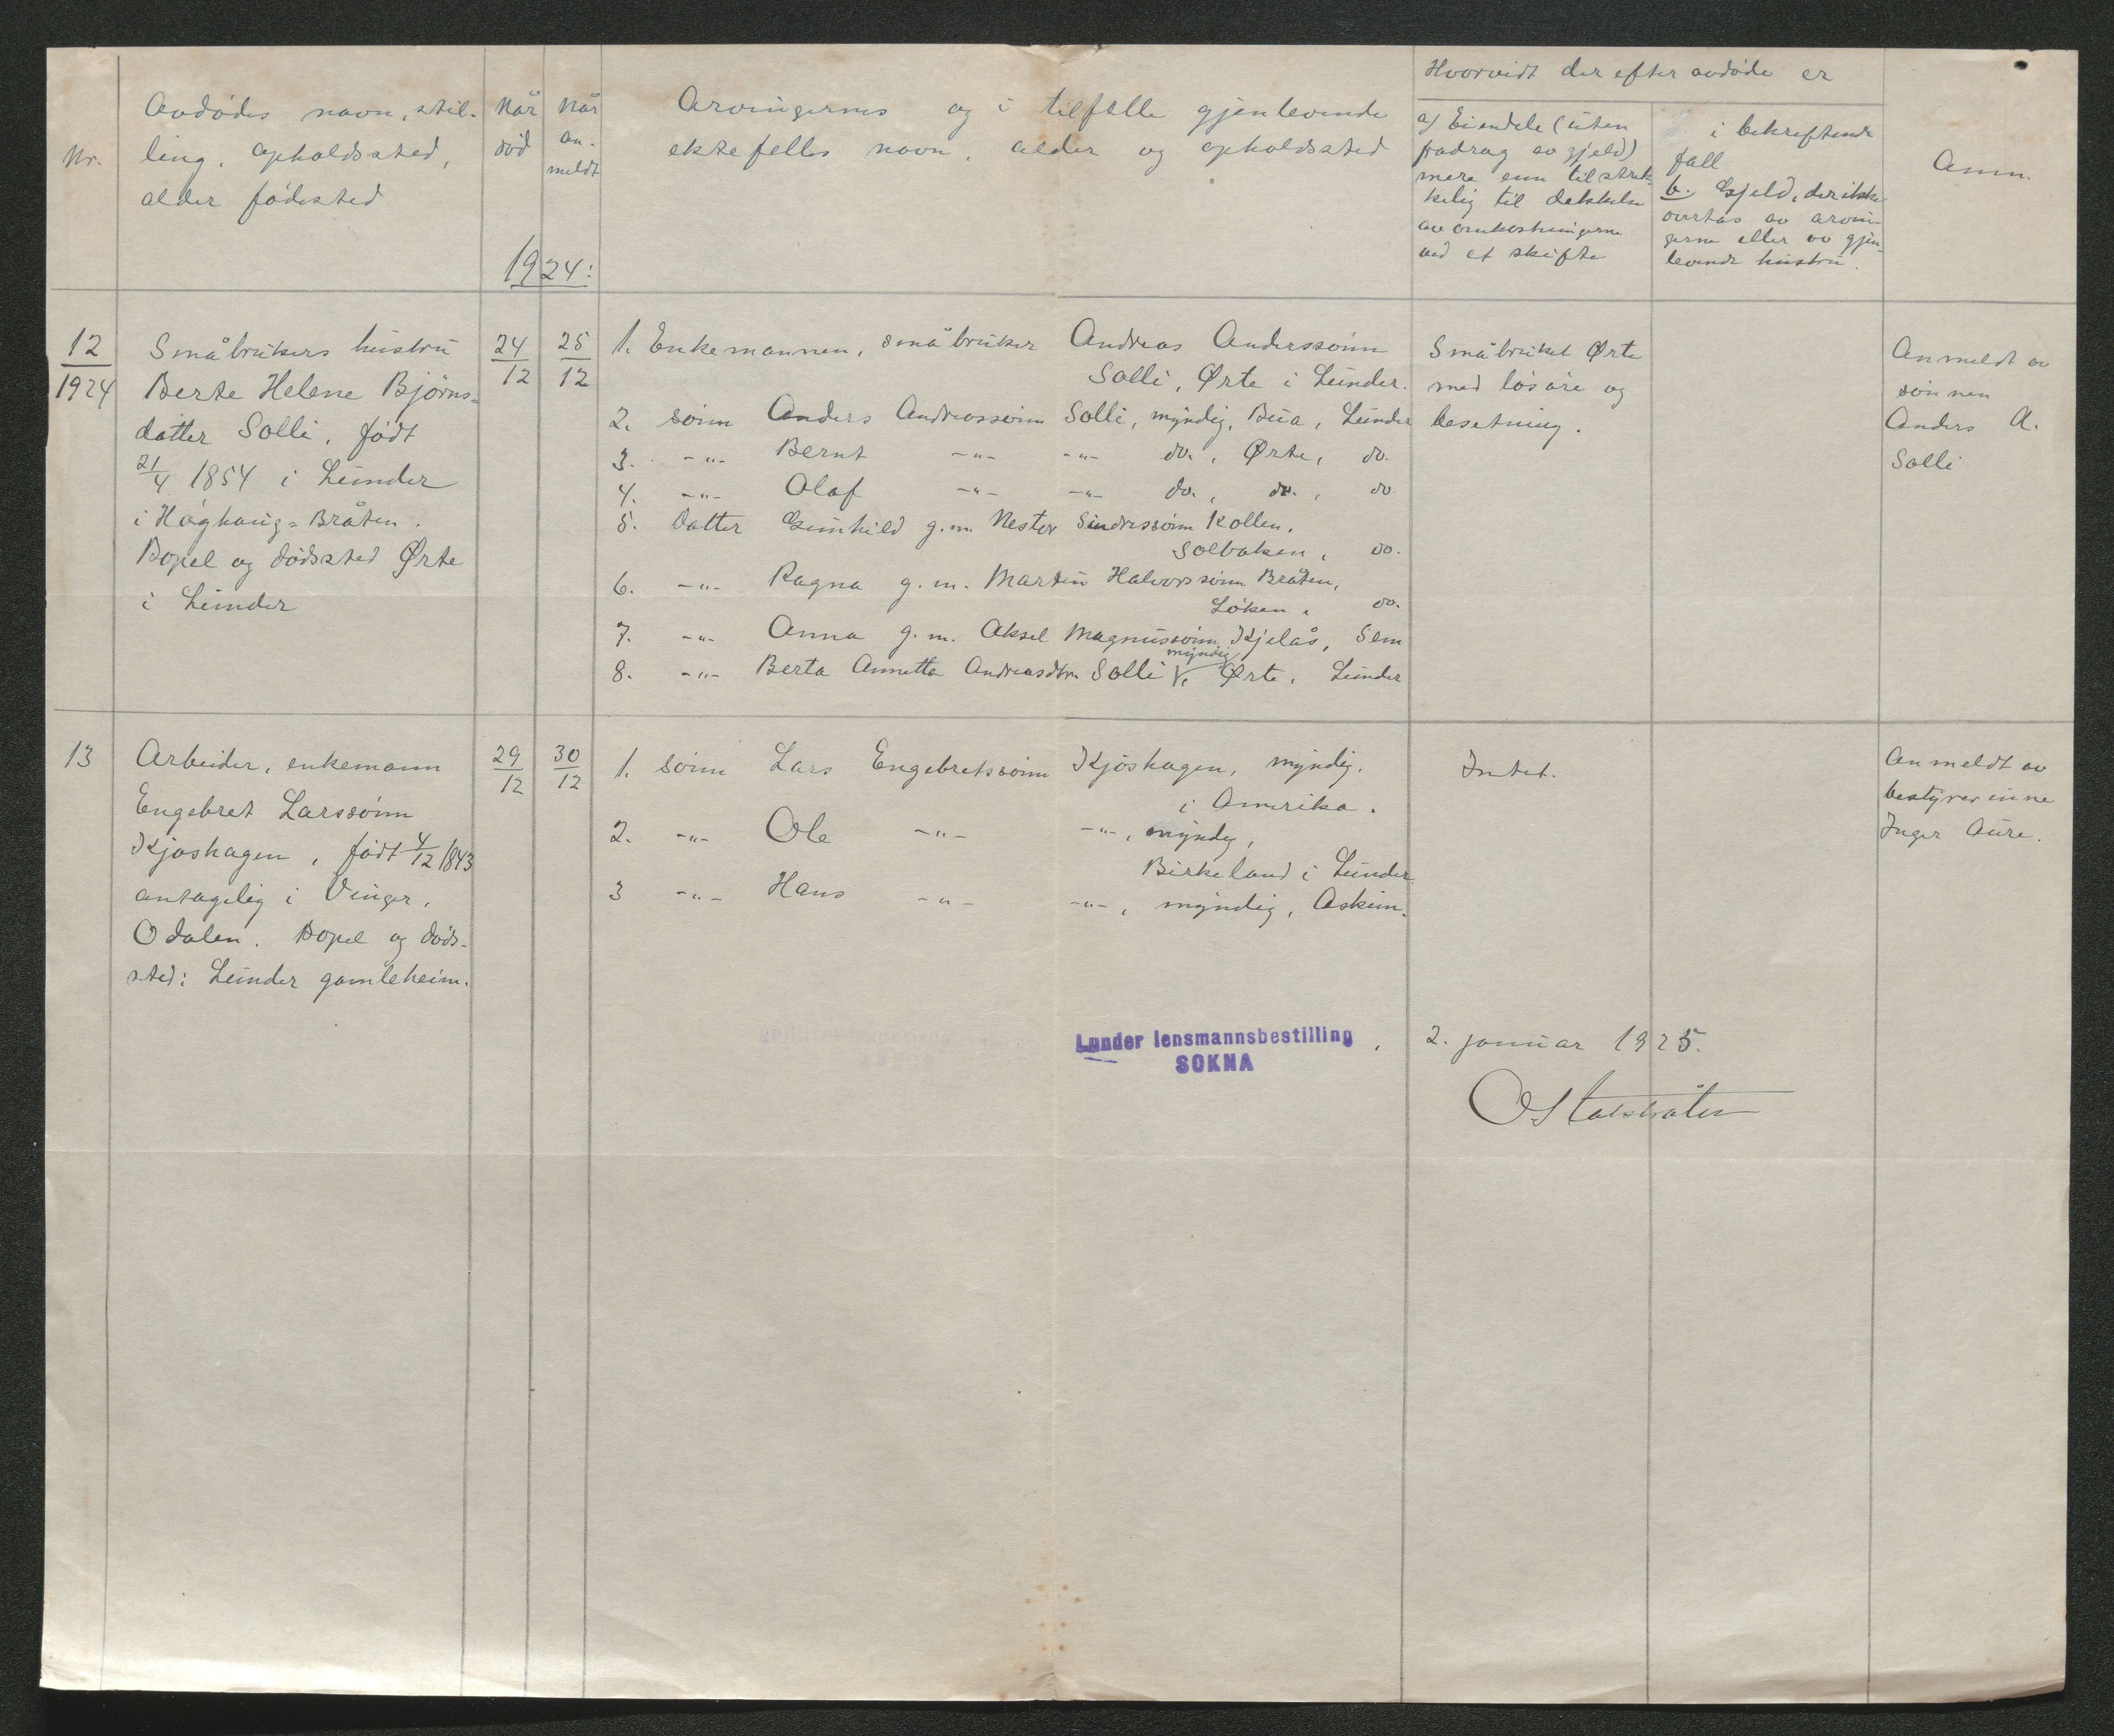 Hvorvidt der efter avdøde er
Nr.
Avdødes navn, stil-
ling, opholdssted,
alder fødested
Når
død
Når
an-
meldt
1924:
Arvingernes og i tilfælle gjenlevende
ektefelles navn, alder og opholdssted
a) Eiendele (uten
fradrag av gjeld)
mere enn tilstræk-
kelig til dekkelse
av omkostningerne
ved et skifte
i bekreftende
fall
b. Gjeld, der ikke
overtas av arvin-
gerne eller av gjen-
levende hustru.
Anm.
12
1924
Småbrukers hustru
Berte Helene Bjørns-
datter Solli, født
21/4 1854 i Lunder
i Høghaug-Bråten.
Bopel og dødssted Ørte
i Lunder
24/12
25/12
1. Enkemannen, småbruker Andreas Anderssønn
Solli, Ørte i Lunder.
2. sønn Anders Andreassønn Solli, myndig, Bua, Lunder
3. -"- Bernt -"- -"- do., Ørte, do.
4. -"- Olaf -"- -"- do., do., do.
5. Datter Gunhild g.m. Nestor Sindressønn Kollen,
Solbaken, do.
6. -"- Ragna g.m. Martin Halvorssønn Bråten,
Løken, do.
7. -"- Anna g.m. Aksel Magnussønn Kjelås, Sem
myndig
8. -"- Berta Annetta Andreasdtr. Solli, Ørte, Lunder
Småbruket Ørte
med løsøre og
besetning.
Anmeldt av
sønnen
Anders A.
Solli
13
Arbeider, enkemann
Engebret Larssønn
Kjøshagen, født 4/12 1843
antagelig i Vinger,
Odalen. Bopel og døds-
sted: Lunder gamleheim.
29/12
30/12
1. sønn Lars Engebretssønn Kjøshagen, myndig,
i Amerika.
2. -"- Ole -"- -"-, myndig,
Birkeland i Lunder.
3 -"- Hans -"- -"-, myndig, Askim.
Intet.
Anmeldt av
bestyrerinne
Inger Aure.
Lunder lensmannsbestilling, 2. januar 1925.
SOKNA